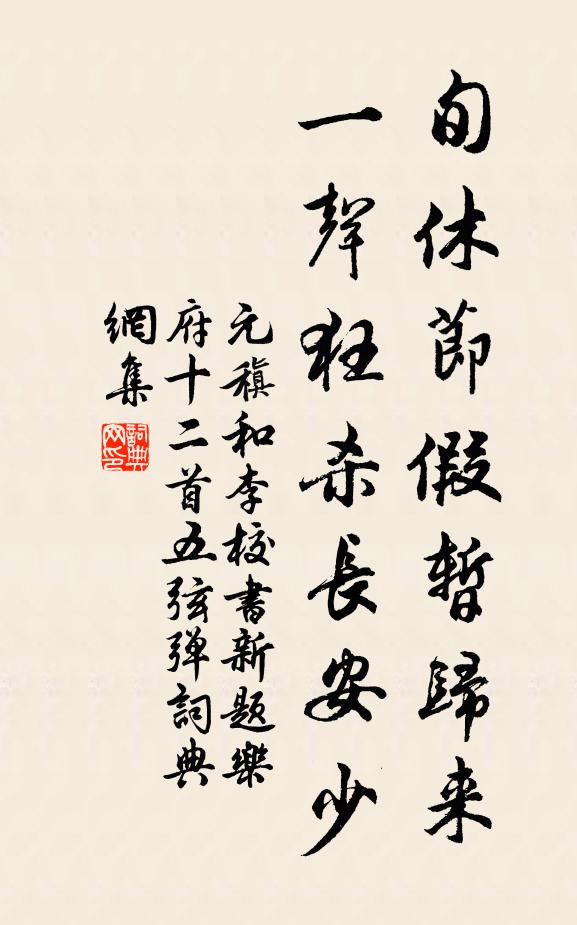 旬休節假暫歸来
一聲狂杀長安少
元稹和李校書新題樂
府十二首五弦弹詞典
網集
詞典网印